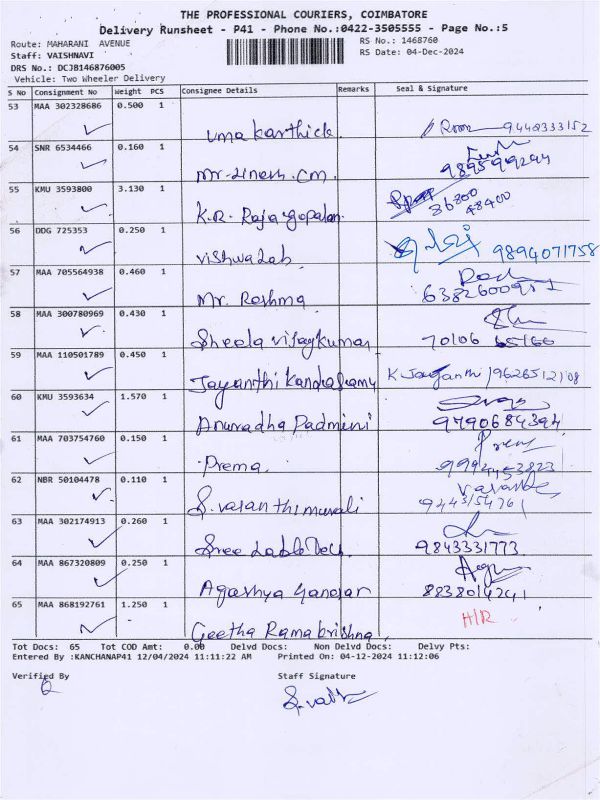 THE PROFESSIONAL COURIERS, COIMBATORE
Delivery Runsheet - P41 - Phone No.:0422-3505555 - Page No.:5
Route: MAHARANI AVENUE
RS No.: 1468760
Staff: VAISHNAVI
RS Date: 04-Dec-2024
DRS No.: DCJB146876005
Vehicle: Two Wheeler Delivery
S No Consignment No Weight PCS Consignee Details Remarks Seal & Signature
53 MAA 302328686 0.500 1
Uma Karthick. 9448333152
54 SNR 6534466 0.160 1
Mr. Dinesh. CM.
55 KMU 3593800 3.130 1
K.R. Rajagopalan 36800 48400
56 DDG 725353 0.250 1
Vishwa Lab 9894071758
57 MAA 705564938 0.460 1
Mr. Reshma
58 MAA 300780969 0.430 1
Sheela Vijaykumar 70106
59 MAA 110501789 0.450 1
Jayanthi Kandasamy
60 KMU 3593634 1.570 1
Anuradha Padmini 9790684394
61 MAA 703754760 0.150 1
Prema.
62 NBR 50104478 0.110 1
S. Vasanthi murali
63 MAA 302174913 0.260 1
Sree Lablo Tech. 9843331773
64 MAA 867320809 0.250 1
Agashya 8838014241
65 MAA 868192761 1.250 1
Geetha Ramakrishna. H/R
Tot Docs: 65 Tot COD Amt: 0.00 Delvd Docs: Non Delvd Docs: Delvy Pts:
Entered By :KANCHANAP41 12/04/2024 11:11:22 AM Printed On: 04-12-2024 11:12:06
Verified By Staff Signature